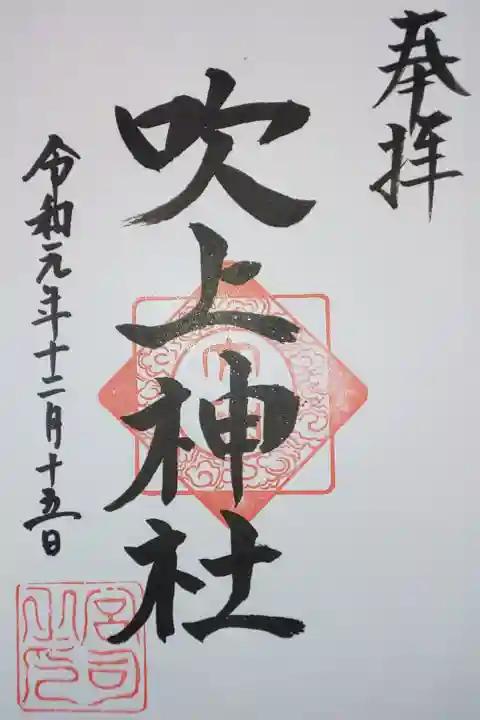 奉拝
吹上神社
令和元年十二月十五日
宮司